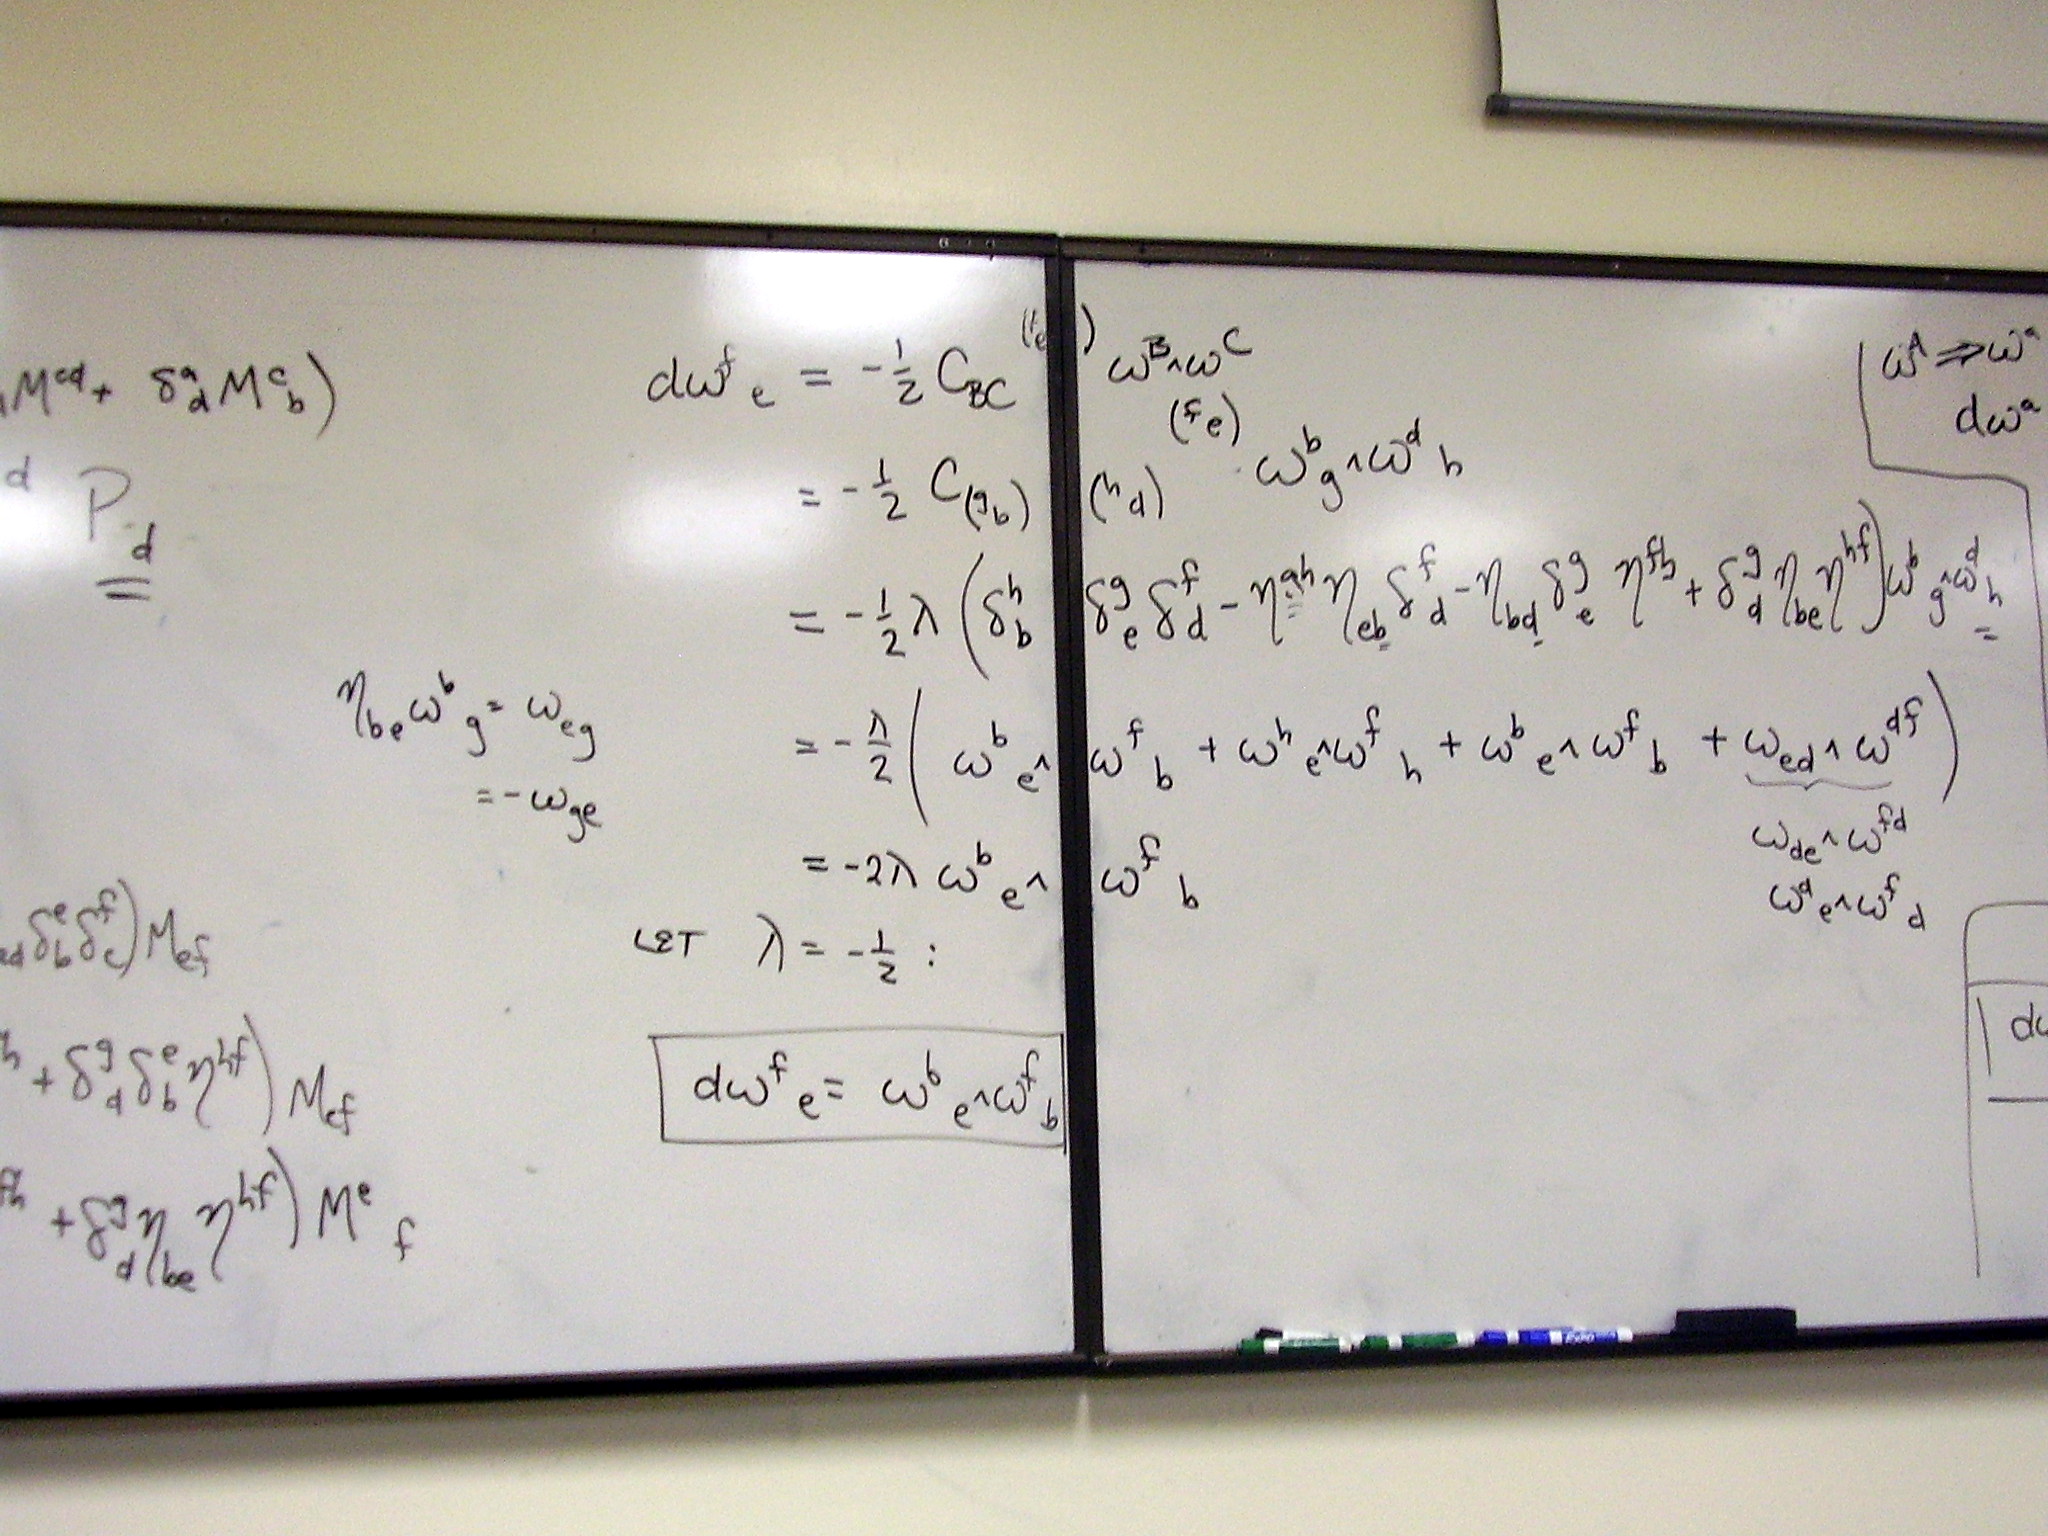 M^{cd} + δ^a_d M^c_b)
^d P_d
δ^e_b δ^f_c) M_{ef}
+ δ^g_d δ^e_b η^{hf}) M_{ef}
^{fh} + δ^g_d η_{be} η^{hf}) M^e_f
η_{be} ω^b_g = ω_{eg}
= -ω_{ge}
dω^f_e = -1/2 C_{BC}^{(f_e)} ω^B ∧ ω^C
= -1/2 C_{(g_b)(h_d)}^{(f_e)} ω^b_g ∧ ω^d_h
= -1/2 λ (δ^h_b δ^g_e δ^f_d - η^{gh} η_{eb} δ^f_d - η_{bd} δ^g_e η^{fh} + δ^g_d η_{be} η^{hf}) ω^b_g ∧ ω^d_h
= -λ/2 (ω^b_e ∧ ω^f_b + ω^h_e ∧ ω^f_h + ω^b_e ∧ ω^f_b + ω_{ed} ∧ ω^{df})
ω_{de} ∧ ω^{fd}
ω^d_e ∧ ω^f_d
= -2λ ω^b_e ∧ ω^f_b
LET λ = -1/2 :
dω^f_e = ω^b_e ∧ ω^f_b
ω^A ⇒ ω^a
dω^a
dω
EXPO